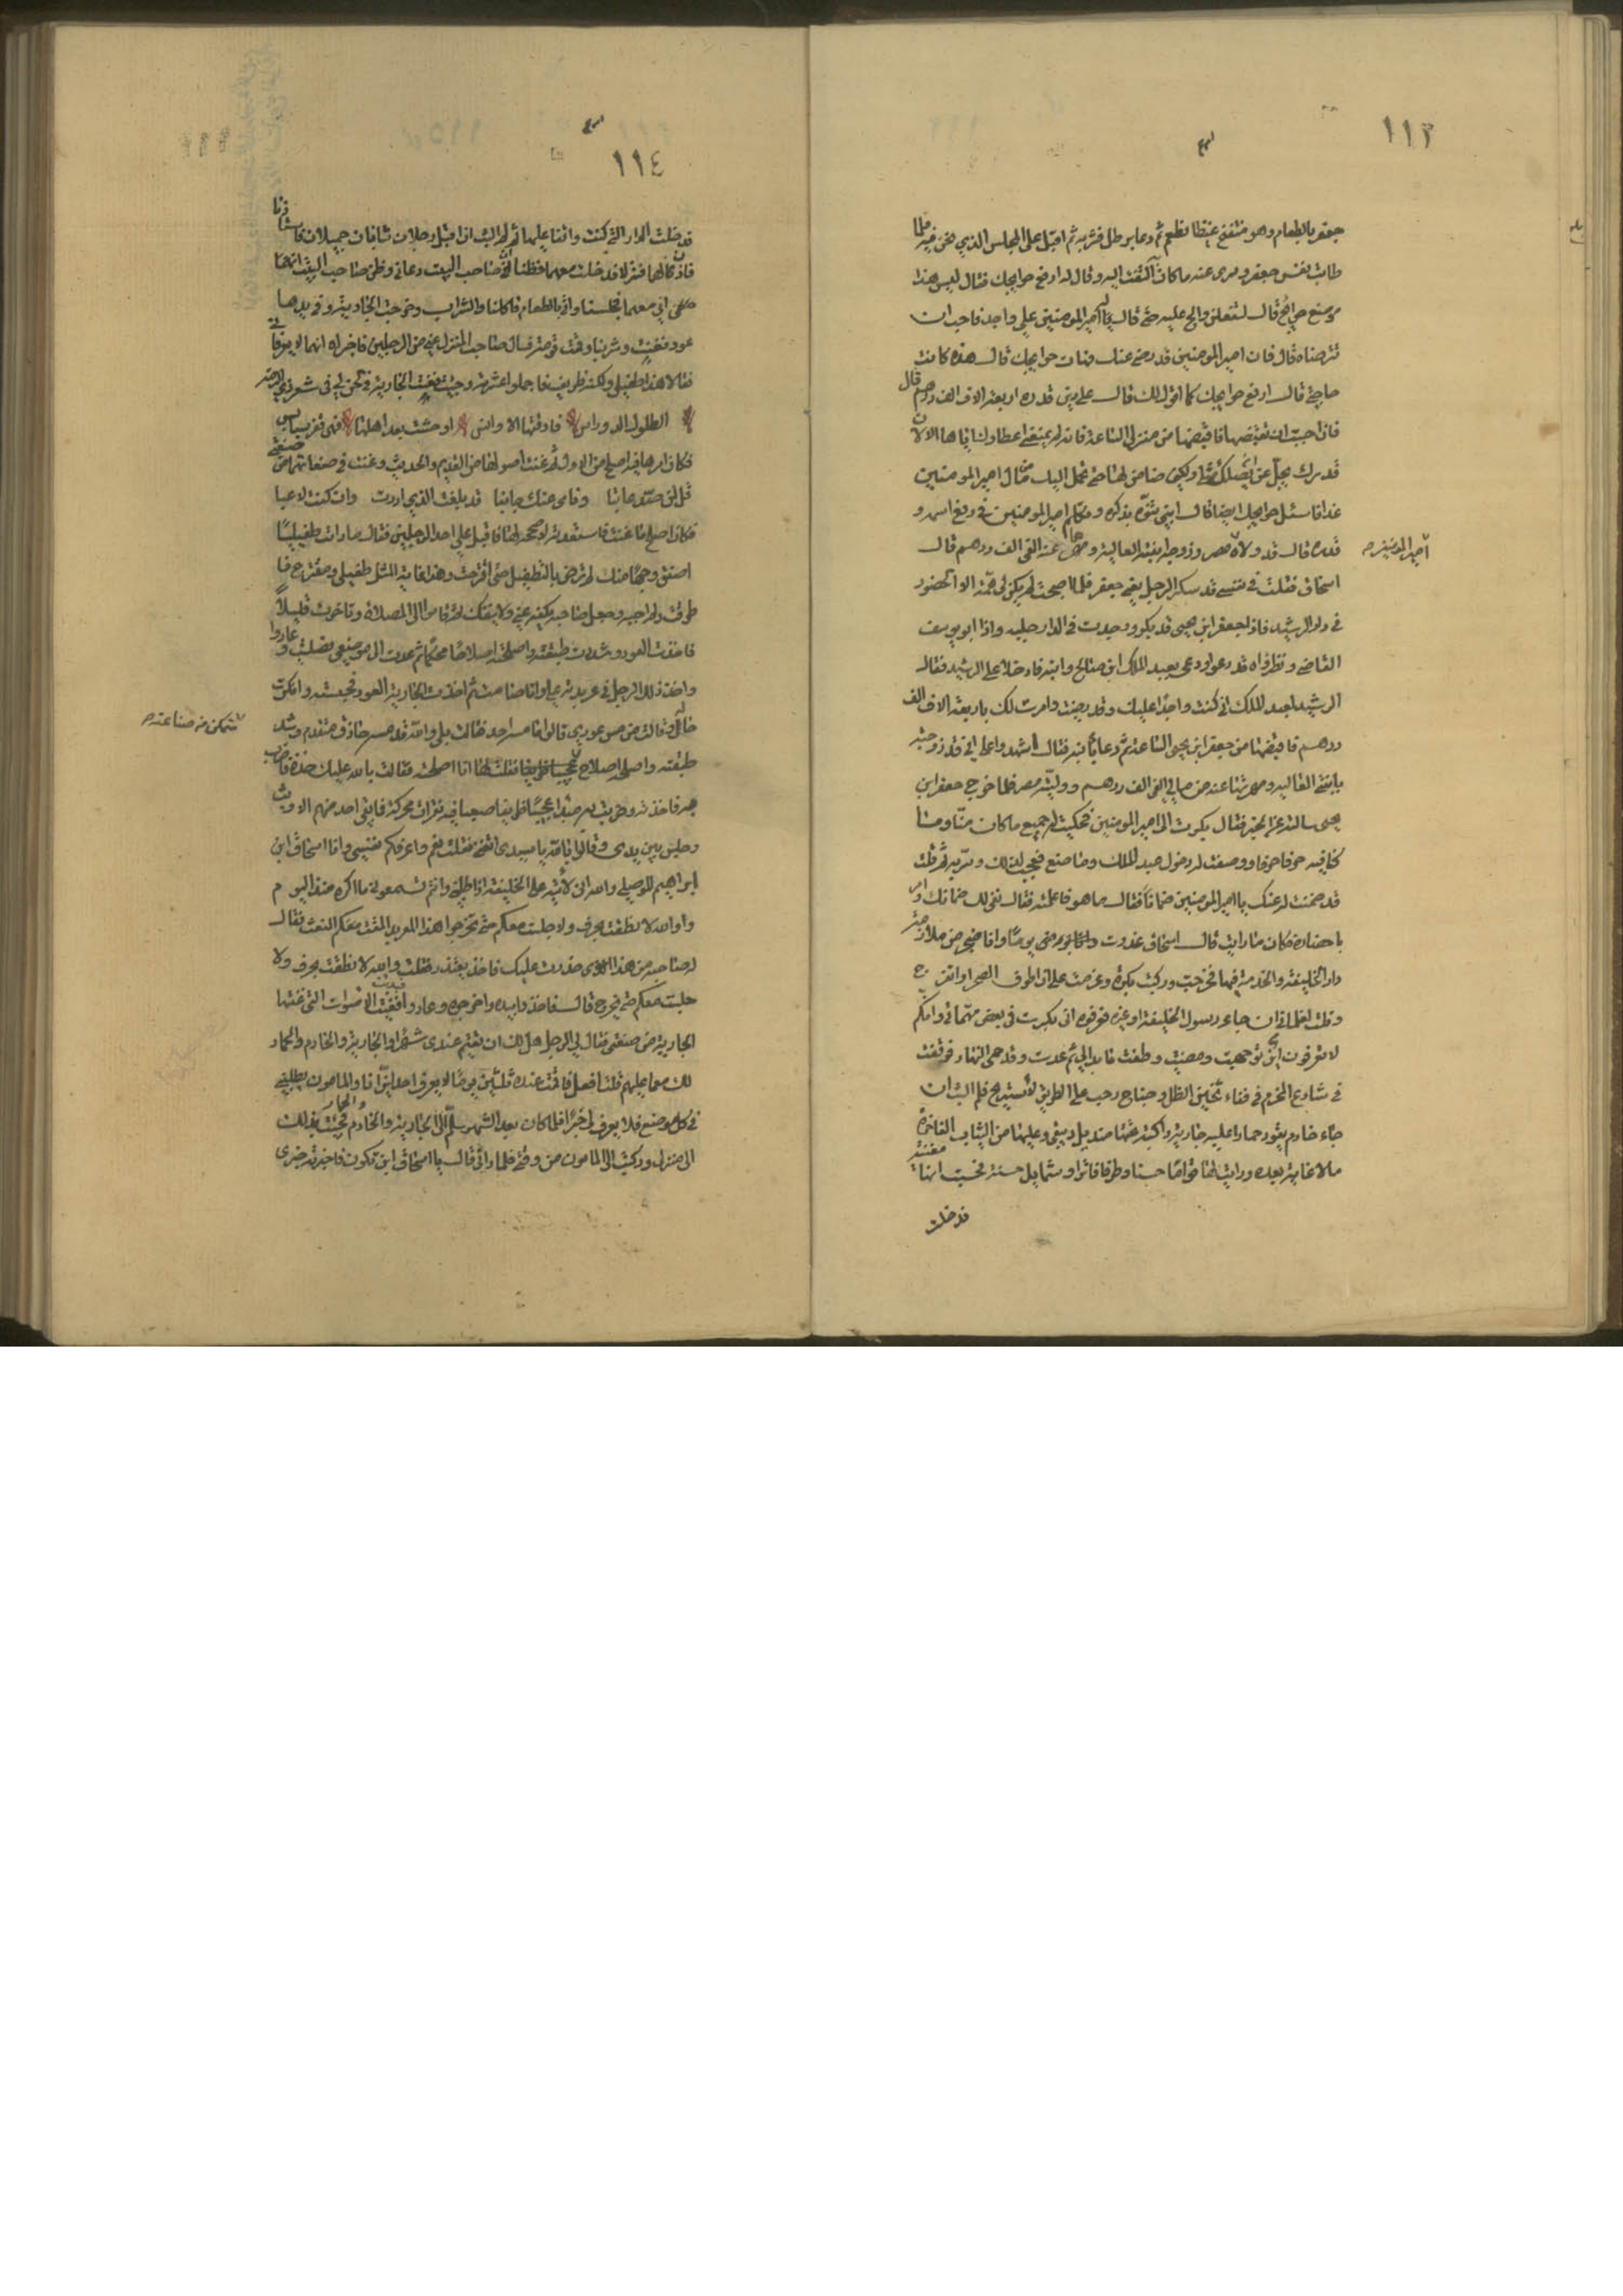 ١١٣
جعفر بالطعام وهو منتفخ غيظا فطعم ثم دعا برطل فشربه ثم اقبل على المجلس الذي نحن فيه فلما
طابت نفس جعفر وسرى عنه ما كان التفت اليه وقال له ارفع حوايجك فقال ليس هذا
موضع حوايج قال لتفعلن والح عليه حتى قال له امير المومنين علي واجد فاحب ان
تترضاه قال فان امير المومنين قد رضي عنك فهات حوايجك قال هذه كانت
حاجتي قال ارفع حوايجك كما اقول لك قال علي دين قدره اربعة الاف الف درهم قال
فان احببت ان تقبضها فاقبضها من منزلي الساعة فانه لم يمنعني اعطاوك اياها الا ان
قدرك يجل عن ان يصلك مثلي ولكني ضامن لها حتى تحمل اليك من مال امير المومنين
غدا فاسئل حوايجك ايضا قال ابني تنوه بذكره وتكلم امير المومنين في رفع اسمه و
امير المومنين
قدره قال قد ولاه مصر وزوجه ابنته العالية ومهرها عنه الفي الف درهم قال
اسحاق فقلت في نفسي قد سكر الرجل يعني جعفر فلما اصبحت لم يكن لي همة الا الحضور
في دار الرشيد فاذا جعفر ابن يحيى قد بكر ووجدت في الدار جلبه واذا ابو يوسف
القاضي ونظراه قد دعوا ودعي بعبد الملك ابن صالح وابنه فادخلا على الرشيد فقال
الرشيد لعبد الملك اني كنت واجدا عليك وقد رضيت وامرت لك باربعة الاف الف
درهم فاقبضها من جعفر ابن يحيى الساعة ثم دعا بابنه فقال اشهدوا علي اني قد زوجته
بابنتي العاليه ومهرتها عنه من مالي الفي الف درهم ووليته مصر فلما خرج جعفر ابن
يحيى سالته عن الخبر فقال بكرت الى امير المومنين فحكيت له جميع ما كان منا وما
كنا فيه حرفا حرفا ووصفت له دخول عبد الملك وما صنع فعجب لذلك وسر به ثم قلت
قد ضمنت له عنك يا امير المومنين ضمانا فقال ما هو فاعلمته فقال نفي لك ضمانك وامر
باحضاره فكان ما رايت قال اسحاق غدوت يوما وانا ضجر من ملازمة
دار الخليفة والخدمة فيها فخرجت وركبت بكرة وعزمت على ان اطوف الصحرا واتفرج
وقلت لغلماني ان جاء رسول الخليفة او غيره فعرفوه اني بكرت في بعض مهماتي وانكم
لا تعرفون اين توجهت ومضيت وطفت ما بدا لي ثم عدت وقد حمي النهار فوقفت
في شارع المخرم في فناء ثخين الظل وجناح رحب على الطريق لاستريح فلم البث ان
جاء خادم يقود حمارا عليه جارية راكبة تحتها منديل دبيقي وعليها من الثياب الفاخرة
ما لا غاية بعده ورايت لها قواما حسنا وطرفا فاترا وشمايل حسنة فخمنت انها مغنية
فدخلت
١١٤
فدخلت الدار التي كنت واقفا عليها ثم لم البث اذا اقبل رجلان شابان جميلان فاستاذنا
فاذن لهما فنزلا فدخلت معهما فظنا ان صاحب البيت دعاني وظن صاحب البيت انهما
اني معهما فجلسنا واتي بالطعام فاكلنا والشراب وخرجت الجارية وفي يدها
عود فغنت وشربنا وقمت قومة فسال صاحب المنزل عني من الرجلين فاخبراه انهما لا يعرفاني
فقال هذا طفيلي ولكنه ظريف فاجملوا عشرته وجئت فغنت الجارية في لحن لي في شعر ذي الرمة
الطلول الدوارس فارقتها الاوانس اوحشت بعد اهلها فهي قفر بسابس
فكان امرها فيه اصلح من الاول ثم غنت اصواتا من القديم والحديث وغنت في صنعتي
قل لمن صد عاتبا وناى عنك جانبا قد بلغت الذي اردت وان كنت لاعبا
فكان اصلح ما غنت فاستعدته لاصححه لها فاقبل علي احد الرجلين فقال ما رايت طفيليا
اصفق وجها منك لم ترض بالتطفيل حتى اقترحت وهذا غاية المثل طفيلي ومقترح فا
طرقت ولم اجبه وجعل صاحبه يكفه عني ولا ينفك ثم قاموا الى الصلاة وتاخرت قليلا
فاخذت العود وشددت طبقته واصلحته اصلاحا محكما ثم عدت الى موضعي فصليت وعادوا
واخذ ذلك الرجل في عربدته علي وانا صامت ثم اخذت الجارية العود فجسته وانكرت
حاله وقالت من مس عودي قالوا ما مسه احد فقالت بلى والله قد مسه حاذق متقدم وشد
متمكن من صناعته
طبقته واصلحه اصلاح فقلت لها انا اصلحته فقالت بالله عليك خذه فاضرب
به فاخذته وضربت به مبدا عجيبا ظريفا صعبا فيه نقرات محركة فما بقي احد منهم الا وثب
وجلس بين يدي وقالوا بالله يا سيدي اتغني فقلت نعم واعرفكم نفسي وانا اسحاق ابن
ابراهيم الموصلي والله اني لاتيه على الخليفة اذا طلبني وانتم تسمعوني ما اكره منذ اليوم
والله لا نطقت بحرف ولا جلست معكم حتى تخرجوا هذا المعربد فقال
له صاحبه من هذا حذرت عليك فاخذ يعتذر فقلت والله لا نطقت بحرف ولا
جلست معكم حتى يخرج قال فاخذوا بيده واخرجوه وعادوا فغنيت الاصوات التي غنتها
الجارية من صنعتي فقال لي الرجل هل لك ان تقيم عندي شهرا والجارية والخادم والحمار
لك مع ما عليهم قلت افعل فاقمت عنده ثلثين يوما لا يعرف احد اين انا والمامون يطلبني
في كل موضع فلا يعرف لي خبرا فلما كان بعد الشهر سلم الي الجارية والخادم والحمار فجئت بذلك
الى منزلي وركبت الى المامون من وقتي فلما راني قال يا اسحاق اين تكون فاخبرته خبري